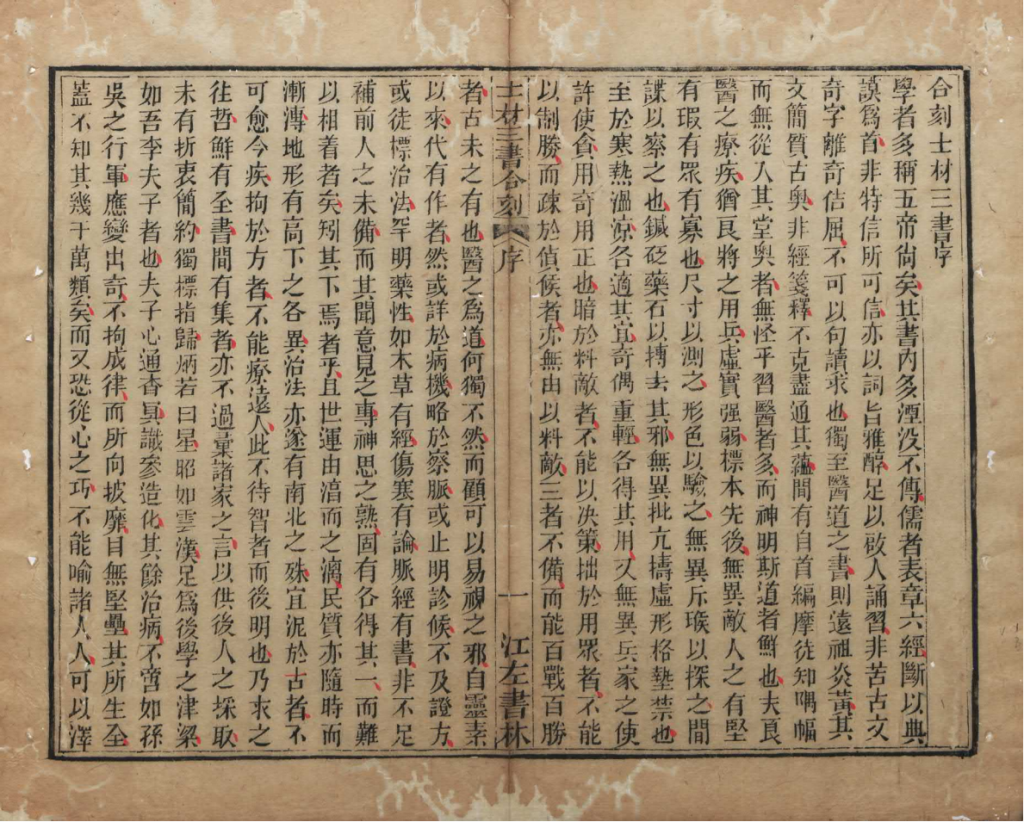 合刻士材三書序
學者多稱五帝尙矣其書內多湮没不傳儒者表章六經斷以典
謨爲首非特信所可信亦以詞旨雅醇足以啟人誦習非苦古文
奇字離奇佶屈不可以句讀求也獨至醫道之書則遠祖炎黃其
文簡質古奥非經箋釋不克盡通其蘊間有自首編摩徒知隅幅
而無從入其堂奥者無怪乎習醫者多而神明斯道者鮮也夫良
醫之療疾猶良將之用兵虛實强弱標本先後無異敵人之有堅
有瑕有眾有寡也尺寸以測之形色以驗之無異斥堠以探之間
諜以察之也鍼砭藥石以搏去其邪無異批亢擣虛形格埶禁也
至於寒熱溫凉各適其宜奇偶重輕各得其用又無異兵家之使
許使貪用奇用正也暗於料敵者不能以决策拙於用眾者不能
以制勝而疎於偵候者亦無由以料敵三者不備而能百戰百勝
士材三書合刻 序 一 江左書林
者古未之有也醫之爲道何獨不然而顧可以易視之邪自靈素
以來代有作者然或詳於病機略於察脈或止明診候不及證方
或徒標治法罕明藥性如本草有經傷寒有論脈經有書非不足
補前人之未備而其聞意見之專神思之熟固有各得其一而難
以相着者矣矧其下焉者乎且世運由湻而之漓民質亦隨時而
漸溥地形有高下之各異治法亦遂有南北之殊宜泥於古者不
可愈今疾拘於方者不能療遠人此不待智者而後明也乃求之
往哲鮮有全書間有集者亦不過彙諸家之言以供後人之採取
未有折衷簡約獨標指歸炳若日星昭如雲漢足爲後學之津梁
如吾李夫子者也夫子心通杳冥識參造化其餘治病不啻如孫
吳之行軍應變出奇不拘成律而所向披靡目無堅壘其所生全
蓋不知其幾千萬類矣而又恐從心之巧不能喻諸人人可以澤